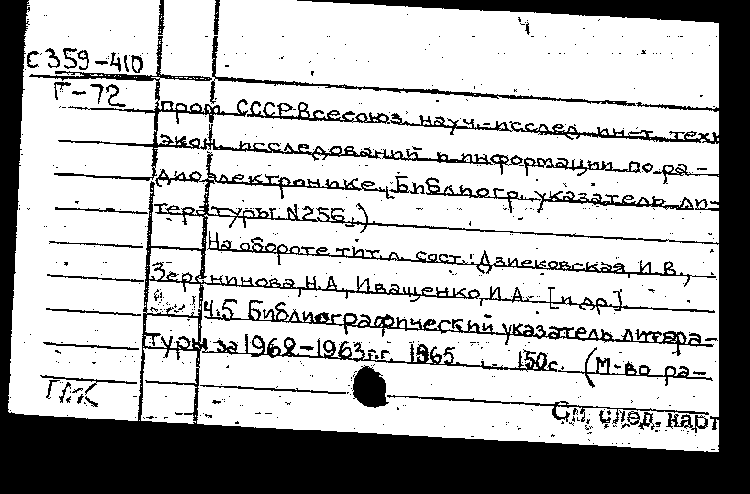 4
С359-410
Г-72
пром. СССР. Всесоюз. науч.-исслед. ин-т. техн
экон. исследований и информации по ра-
диоэлектронике. Библиогр. указатель ли-
тературы. N256.)
На обороте тит. л. сост.: Дзиековская, И.В.,
Зеренинова, Н.А., Иващенко, И.А. [и др.]
Ч.5 Библиографический указатель литера-
туры за 1962-1963г.г. 1965. 150с. (М-во ра-
См. след. карт